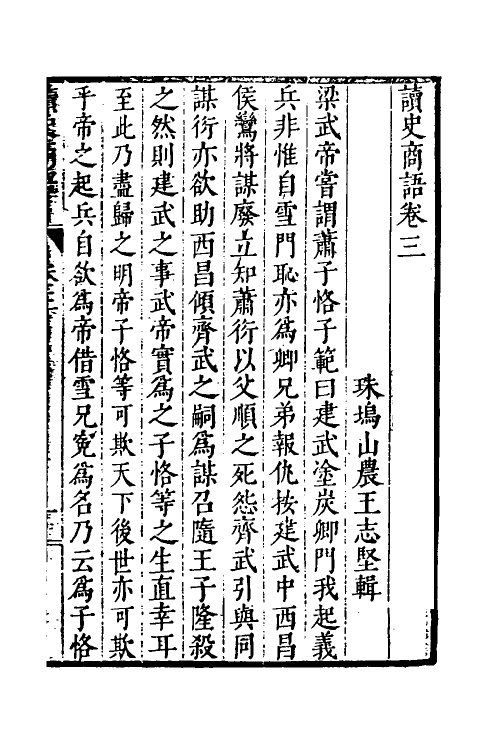 讀史商語卷三
珠塢山農王志堅輯
梁武帝嘗謂蕭子恪子範曰建武塗炭卿門我起義
兵非惟自雪門恥亦為卿兄弟報仇按建武中西昌
侯鸞將謀廢立知蕭衍以父順之死怨齊武引與同
謀衍亦欲助西昌傾齊武之嗣為謀召隨王子隆殺
之然則建武之事武帝實為之子恪等之生直幸耳
至此乃盡歸之明帝子恪等可欺天下後世亦可欺
乎帝之起兵自欲為帝借雪兄冤為名乃云為子恪